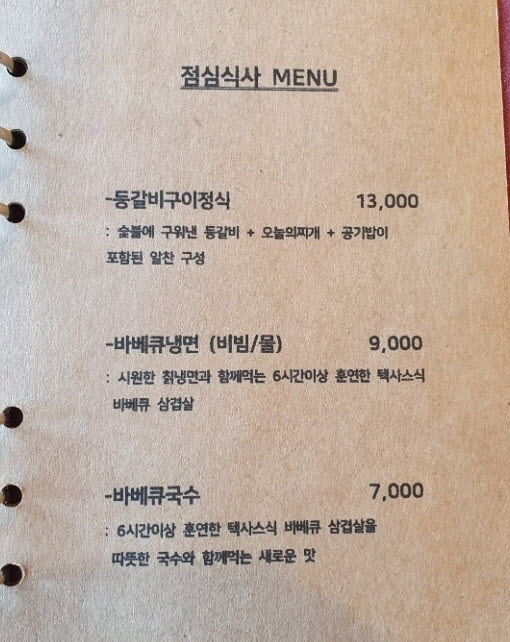 점심식사 MENU
-등갈비구이정식 13,000
: 숯불에 구워낸 등갈비 + 오늘의찌개 + 공기밥이
포함된 알찬 구성
-바베큐냉면 (비빔/물) 9,000
: 시원한 칡냉면과 함께먹는 6시간이상 훈연한 텍사스식
바베큐 삼겹살
-바베큐국수 7,000
: 6시간이상 훈연한 텍사스식 바베큐 삼겹살을
따뜻한 국수와 함께먹는 새로운 맛